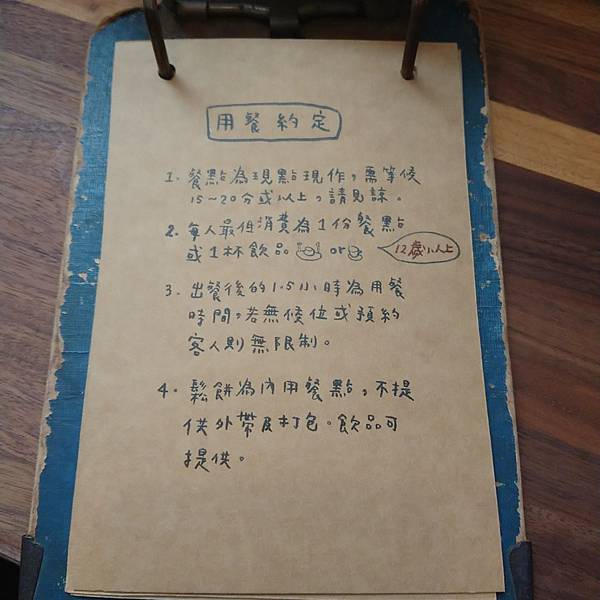 用餐約定
1. 餐點為現點現作，需等候
15~20分或以上，請見諒。
2. 每人最低消費為1份餐點
或1杯飲品 or
12歲以上
3. 出餐後的1.5小時為用餐
時間，若無候位或預約
客人則無限制。
4. 鬆餅為內用餐點，不提
供外帶及打包。飲品可
提供。